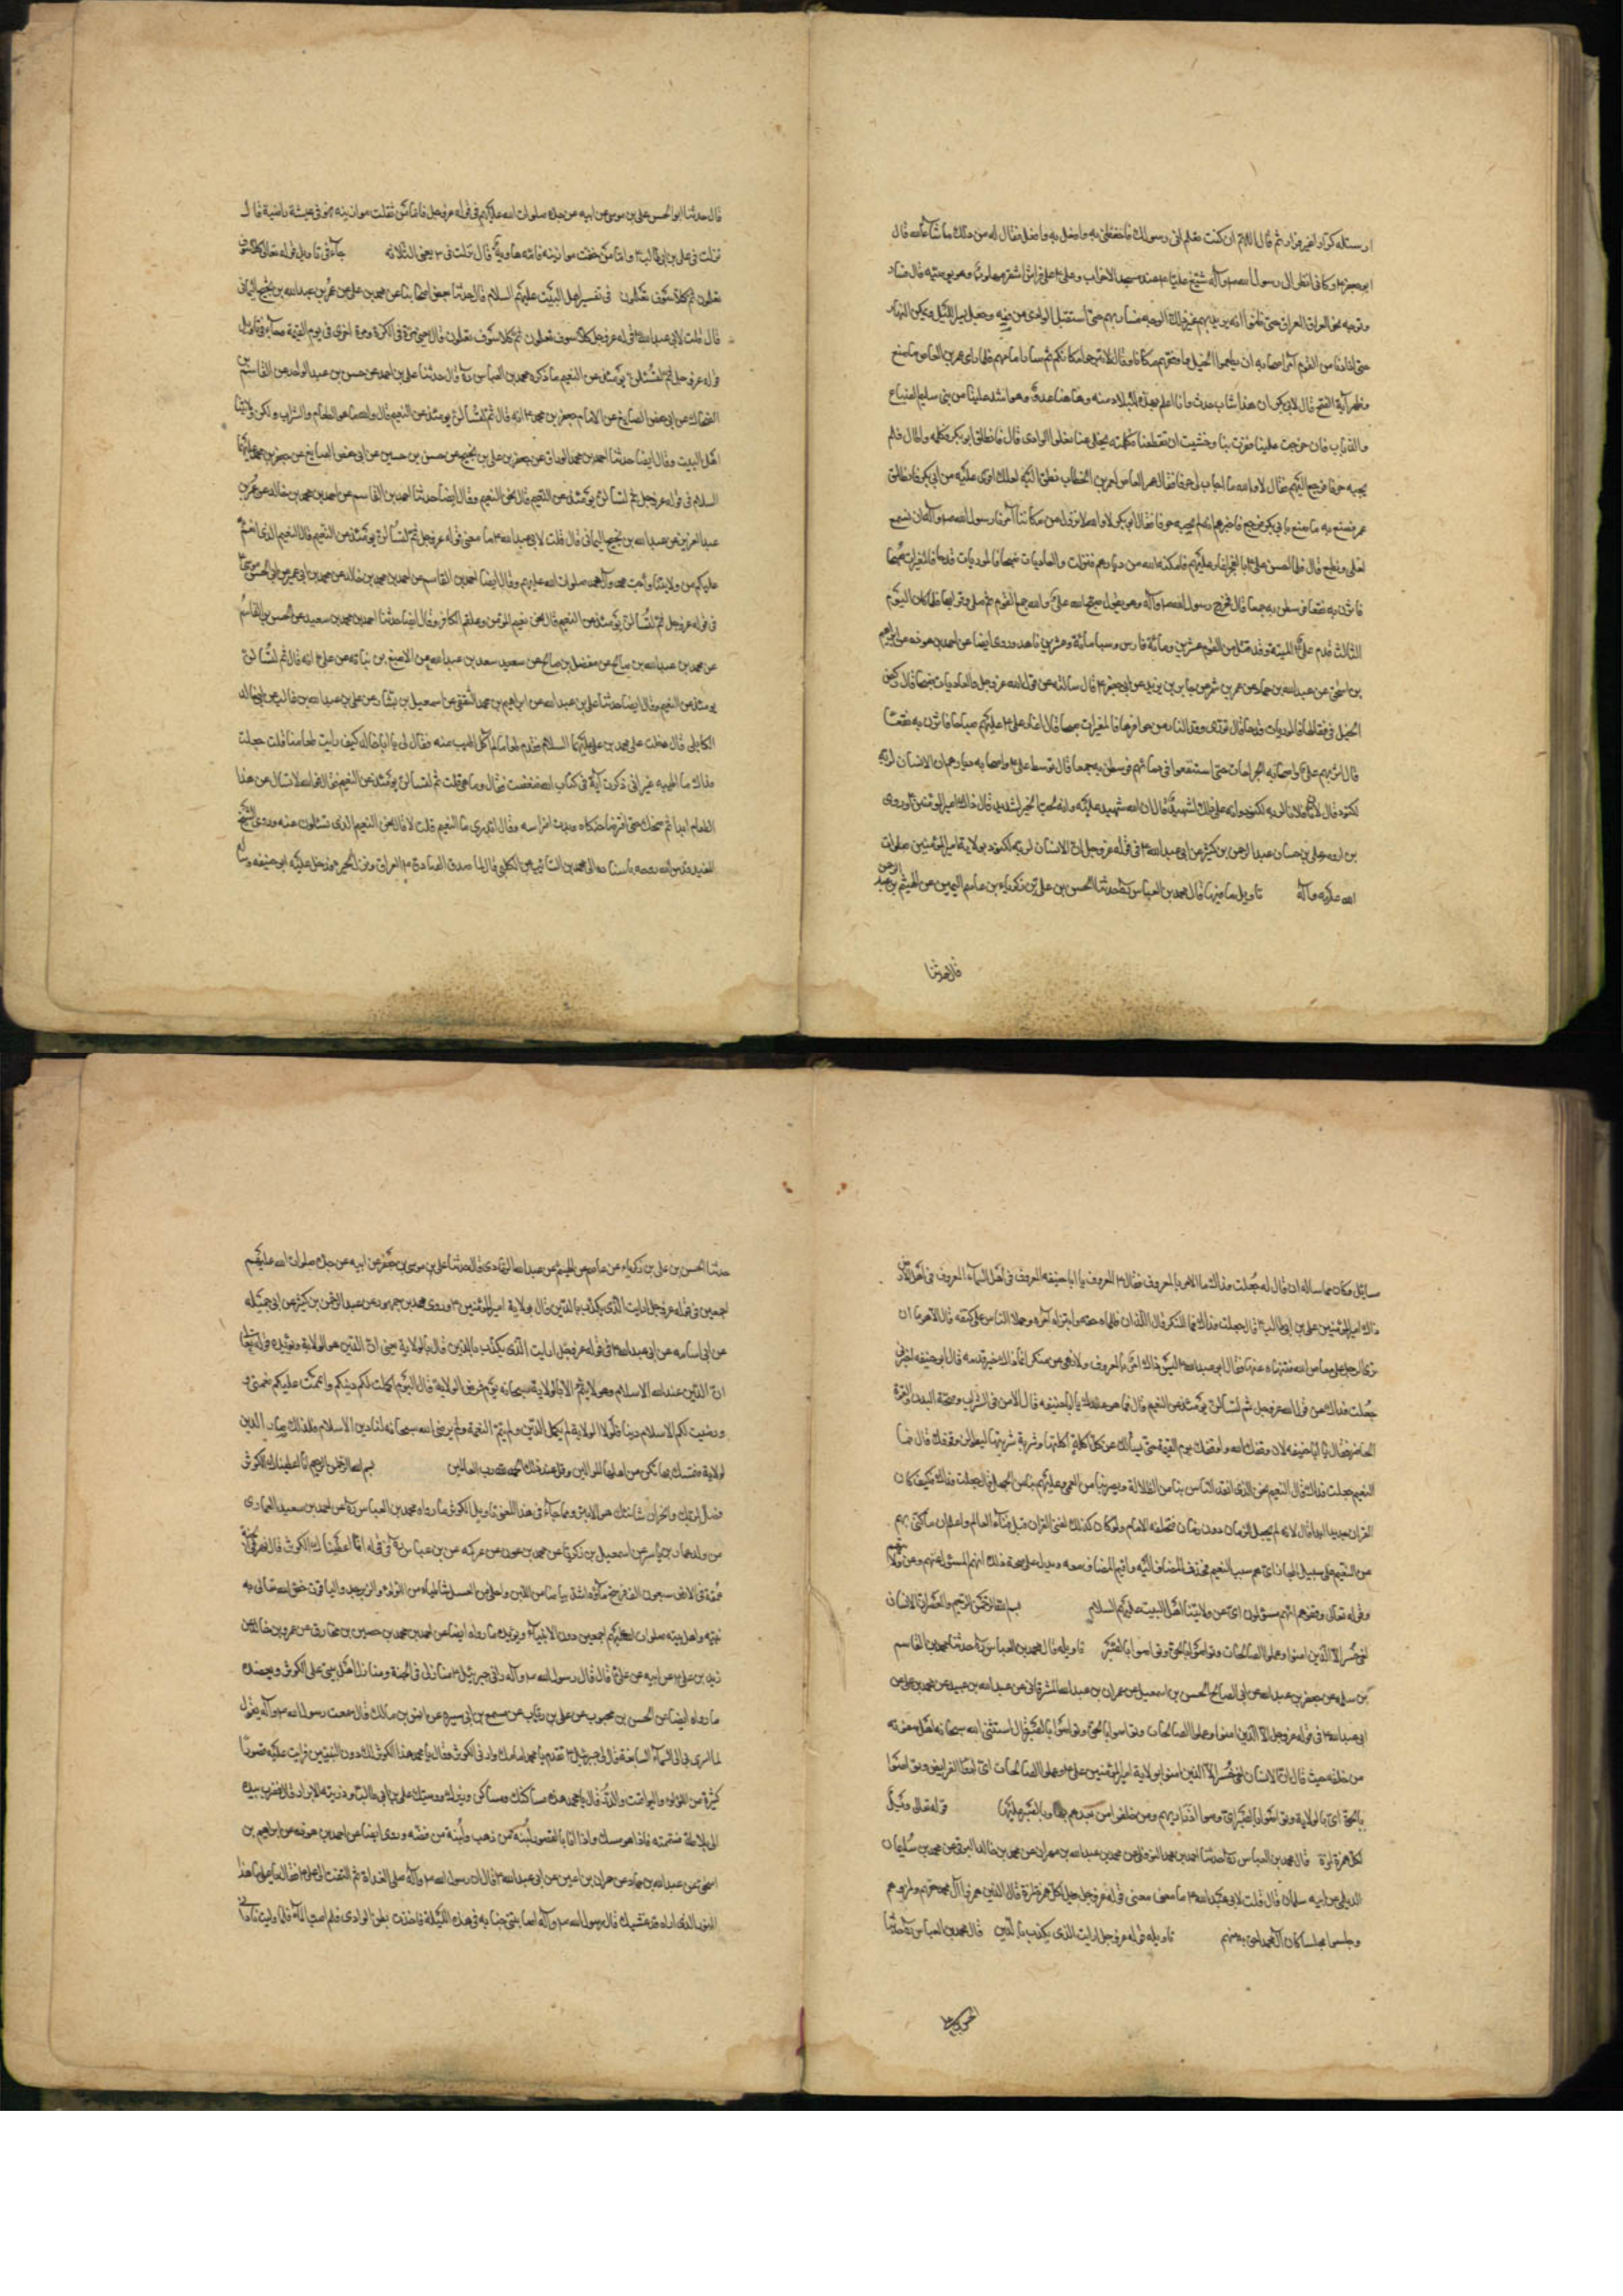 ارسله كرارا غير فرار ثم قال اللهم ان كنت تعلم انى رسولك فاحفظنى به وافعل به وافعل فقال له من ذلك ما شاء الله قال
ابو جعفر وكانى انظر الى رسول الله وآله شيّع عليا عند مسجد الاحزاب وعلى على فرس اشقر مهلوب وهو يوصيه قال فسار
وتوجه نحو العراق حتى ظنوا انه يريد بهم غير ذلك الوجه فسار بهم حتى استقبل الوادى من فيه وجعل يسير الليل ويكمن النهار
حتى اذا دنا من القوم امر اصحابه ان يطعموا الخيل واوقفهم مكانا وقال لا تبرحوا مكانكم ثم سار امامهم فلما راى عمرو بن العاص ما صنع
وظهر آية الفتح قال لابى بكر ان هذا شاب حدث وانا اعلم بهذه البلاد منه وهاهنا عدو هو اشد علينا من بنى سليم الضباع
والذئاب فان خرجت علينا نفرت بنا وخشيت ان تقطعنا فكلمه يخلى عنا نعلوا الوادى قال فانطلق ابو بكر فكلمه واطال فلم
يجبه حرفا فرجع اليهم فقال لا والله ما اجاب لى حرفا فقال عمرو بن العاص لعمر بن الخطاب انطلق اليه لعلك اقوى عليه من ابى بكر فانطلق
عمر فصنع به ما صنع بابى بكر فرجع فاخبرهم انه لم يجبه حرفا فقال ابو بكر لا والله لا نزول من مكاننا امرنا رسول الله وآله ان نسمع
لعلى ونطيع قال فلما احس على بالفجر اغار عليهم فامكنه الله من ديارهم فنزلت والعاديات ضبحا فالموريات قدحا فالمغيرات صبحا
فاثرن به نقعا فوسطن به جمعا قال فخرج رسول الله وآله وهو يقول صبح على والله جمع القوم ثم صلى وقرا بها فلما كان اليوم
الثالث قدم على المدينة وقد قتل من القوم عشرين ومائة فارس وسبا مائة وعشرين ناهدا وروى ايضا عن احمد بن هوذه عن ابراهيم
بن اسحق عن عبد الله بن حماد عن عمرو بن شمر عن جابر بن يزيد عن ابى جعفر قال سالته عن قول الله عز وجل والعاديات ضبحا قال ركض
الخيل فى قتالها فالموريات قدحا قال تورى وقد النار من حوافرها فالمغيرات صبحا قال اغار على عليهم صباحا فاثرن به نقعا
قال اثر بهم على واصحابه الجراحات حتى استنقعوا فى دمائهم فوسطن به جمعا قال توسط على واصحابه ديارهم ان الانسان لربه
لكنود قال ان فلانا لربه لكنود وانه على ذلك لشهيد قال ان الله شهيد عليه وانه لحب الخير لشديد قال ذاك امير المؤمنين وروى
بن اورمه على بن حسان عبد الرحمن بن كثير عن ابى عبد الله فى قوله عز وجل ان الانسان لربه لكنود بولاية امير المؤمنين صلوات
الله عليه وآله تاويل ما فيها قال محمد بن العباس حدثنا الحسن بن على بن زكرياء بن عاصم اليمين عن الهيثم بن عبد الرحمن
قال حدثنا
قال حدثنا ابو الحسن على بن موسى عن ابيه عن جده صلوات الله عليهم فى قوله عز وجل فاما من ثقلت موازينه فهو فى عيشة راضية قال
نزلت فى على بن ابى طالب واما من خفت موازينه فامه هاوية قال نزلت فى يعنى الثلاثة جاء فى تاويل قوله تعالى كلا سوف
تعلمون ثم كلا سوف تعلمون فى تفسير اهل البيت عليهم السلام قال حدثنا بعض اصحابنا عن محمد بن على عن عمرو بن عبد الله بن نجيح اليمانى
قال قلت لابى عبد الله قوله عز وجل كلا سوف تعلمون ثم كلا سوف تعلمون قال يعنى مرة فى الكرة ومرة اخرى فى يوم القيمة
قوله عز وجل ثم لتسئلن يومئذ عن النعيم ما ذكره محمد بن العباس قال حدثنا على بن احمد عن حسن بن عبد الواحد عن القاسم بن
الضحاك عن ابى حفص الصايغ عن الامام جعفر بن محمد انه قال ثم لتسالن يومئذ عن النعيم قال والله ما هو الطعام والشراب ولكن ولايتنا
اهل البيت وقال ايضا حدثنا احمد بن محمد الوراق عن جعفر بن على بن نجيح عن حسن بن حسين عن ابى حفص الصايغ عن جعفر بن محمد عليهما
السلام فى قوله عز وجل ثم لتسالن يومئذ عن النعيم قال نحن النعيم وقال ايضا حدثنا احمد بن القاسم عن احمد بن محمد بن خالد عن عمر بن
عبد العزيز عن عبد الله بن نجيح اليمانى قال قلت لابى عبد الله ما معنى قوله عز وجل ثم لتسالن يومئذ عن النعيم قال النعيم الذى انعم
عليكم من ولايتنا وحب محمد وآل محمد صلوات الله عليهم وقال ايضا احمد بن القاسم عن احمد بن محمد بن خالد عن محمد بن ابى عمير عن ابى الحسن موسى
فى قوله عز وجل ثم لتسئلن يومئذ عن النعيم قال نحن نعيم المؤمن وعلقم الكافر وقال ايضا حدثنا احمد بن محمد بن سعيد عن الحسن بن القاسم
عن محمد بن عبد الله بن صالح عن مفضل بن صالح عن سعيد سعد بن عبد الله عن الاصبغ بن نباته عن على انه قال ثم لتسالن
يومئذ عن النعيم وقال ايضا حدثنا على بن عبد الله عن ابراهيم بن محمد الثقفى عن اسمعيل بن بشار عن على بن عبد الله بن غالب عن ابى خالد
الكابلى قال دخلت على محمد بن على عليهما السلام فقدم طعاما لم آكل اطيب منه فقال لى يا ابا خالد كيف رايت طعامنا قلت جعلت
فداك ما اطيبه غير انى ذكرت آية فى كتاب الله فنغصت فقال وما هى قلت ثم لتسالن يومئذ عن النعيم فقال والله لا تسال عن هذا
الطعام ابدا ثم ضحك حتى افتر ضاحكاه وبدت اضراسه وقال اتدرى ما النعيم قلت لا قال نحن النعيم الذى تسئلون عنه وروى الشيخ
المفيد قدس الله روحه باسناده الى محمد بن السائب الكلبى قال لما قدم الصادق العراق ونزل الحيرة فدخل عليه ابو حنيفه وساله
مسائل وكان مما ساله ان قال له جعلت فداك ما الامر بالمعروف فقال المعروف يا ابا حنيفه المعروف فى اهل السماء المعروف فى اهل الارض
ذاك امير المؤمنين على بن ابى طالب قال جعلت فداك فما المنكر قال اللذان ظلماه حقه وابتزاه امره وحملا الناس على كتفه قال الا هو ما ان
ترى الرجل على معاصى الله فتنهاه عنها فقال ابو عبد الله ليس ذاك امر بالمعروف ولا نهى عن منكر انما ذاك خير قدمه قال ابو حنيفه اخبرنى
جعلت فداك عن قول الله عز وجل ثم لتسالن يومئذ عن النعيم قال فما هو عندك يا ابا حنيفه قال الامن فى السرب وصحة البدن والقوة
الحاضر فقال يا ابا حنيفه لان وقفك الله واوقفك يوم القيمة حتى يسألك عن كل اكلة اكلتها وشربة شربتها ليطولن وقوفك قال فما
النعيم جعلت فداك قال النعيم نحن الذى انقذ الناس بنا من الضلالة وبصرهم بنا من العمى وعلمهم بنا من الجهل قال جعلت فداك فكيف كان
القران جديدا ابدا قال لانه لم يجعل لزمان دون زمان فتخلقه الايام ولو كان كذلك لفنى القران قبل فناء العالم واعلم ان ما كنى بهم
عن النعيم على سبيل المجاز اى هم سبب النعيم فحذف المضاف اليه واقيم المضاف معه ويدل على صحة ذلك انهم المسئولون عنهم وعن ولايتهم
وقوله تعالى وقفوهم انهم مسؤلون اى عن ولايتنا اهل البيت عليهم السلام بسم الله الرحمن الرحيم والعصر ان الانسان
لفى خسر الا الذين امنوا وعملوا الصالحات وتواصوا بالحق وتواصوا بالصبر تاويله قال محمد بن العباس حدثنا محمد بن القاسم
بن سلمه عن جعفر بن عبد الله عن ابى الصالح الحسن بن اسمعيل عن عمران بن عبد الله المشرقانى عن عبد الله بن عبيد عن محمد بن على عن
ابى عبد الله فى قوله عز وجل الا الذين امنوا وعملوا الصالحات وتواصوا بالحق وتواصوا بالصبر قال استثنى الله سبحانه اهل صفوته
من خلقه حيث قال ان الانسان لفى خسر الا الذين امنوا بولاية امير المؤمنين على وعملوا الصالحات اى ادوا الفرايض وتواصوا
بالحق اى بالولاية وتواصوا بالصبر اى وصوا ذراريهم ومن خلفوا من بعدهم بها وبالصبر عليها قوله تعالى ويل
لكل همزة لمزة قال محمد بن العباس حدثنا احمد بن محمد النوفلى عن محمد بن عبد الله بن مهران عن محمد بن خالد البرقى عن محمد بن سليمان
الديلمى عن ابيه سليمان قال قلت لابى عبد الله ما معنى قوله عز وجل ويل لكل همزة لمزة قال الذين همزوا آل محمد حقهم ولمزوهم
وجلسوا مجلسا كان آل محمد احق به منهم تاويله قوله عز وجل ارايت الذى يكذب بالدين قال محمد بن العباس حدثنا
حدثنا الحسن بن على بن زكرياء عن عاصم عن الهيثم عن عبد الله الرمادى قال حدثنا على بن موسى بن جعفر عن ابيه عن جده صلوات الله عليهم
اجمعين فى قوله عز وجل ارايت الذى يكذب بالدين قال بولاية امير المؤمنين وروى محمد بن جمهور عن عبد الرحمن بن كثير عن ابى جميله
عن ابى اسامه عن ابى عبد الله فى قوله عز وجل ارايت الذى يكذب بالدين قال بالولاية معنى ان الدين هو الولاية ويؤيده قوله تعالى
ان الدين عند الله الاسلام وهو لا يتم الا بالولاية سبحانه يوم فرض الولاية قال اليوم اكملت لكم دينكم واتممت عليكم نعمتى
ورضيت لكم الاسلام دينا فلولا الولاية لم يكمل الدين ولم يتم النعمة ولم يرض الله سبحانه لنا دين الاسلام فلذلك صار الدين
الولاية فتمسك بها تكن من اهلها الموالين وقل عند ذلك الحمد لله رب العالمين بسم الله الرحمن الرحيم انا اعطيناك الكوثر
فصل لربك وانحر ان شانئك هو الابتر ومما جاء فى هذا المعنى تاويل الكوثر ما رواه محمد بن العباس عن احمد بن سعيد العمارى
من ولد عمار بن ياسر عن اسمعيل بن زكريا عن محمد بن عون عن عكرمه عن بن عباس فى قوله انا اعطيناك الكوثر قال نهر فى الجنة
عمقه فى الارض سبعون الف فرسخ ماؤه اشد بياضا من اللبن واحلى من العسل شاطياه من اللؤلؤ والزبرجد والياقوت خص الله تعالى به
نبيه واهل بيته صلوات الله عليهم اجمعين دون الانبياء ويؤيده ما رواه ايضا عن احمد بن محمد عن حصين بن مخارق عن عمرو بن خالد عن
زيد بن على عن ابيه عن على قال قال رسول الله وآله رانى جبرئيل منازلى فى الجنة ومنازل اهل بيتى على الكوثر ويعضده
ما رواه ايضا عن الحسن بن محبوب عن على بن رئاب عن مسمع بن ابى سيره عن انس بن مالك قال سمعت رسول الله وآله يقول
لما اسرى بى الى السماء السابعة قال لى جبرئيل تقدم يا محمد امامك وارانى الكوثر وقال يا محمد هذا الكوثر لك دون النبيين فرايت عليه قصورا
كثيرة من اللؤلؤ والياقوت والدر وقال يا محمد هذه مساكنك ومساكن وزيرك ووصيك على بن ابى طالب وذريته الابرار قال فضرب بيده
الى بلاطه فشمته فاذا هو مسك واذا انا بالقصور لبنة من ذهب ولبنة من فضة وروى ايضا عن احمد بن هوذه عن ابراهيم بن
اسحق عن عبد الله بن حماد عن حمران بن اعين عن ابى عبد الله قال ان رسول الله وآله صلى الغداة ثم التفت الى على فقال يا على ما هذا
النور الذى اراه قد غشيك قال يا رسول الله وآله اصابتنى جنابه فى هذه الليلة فاخذت بطن الوادى فلم اصب الماء فلما وليت نادانى